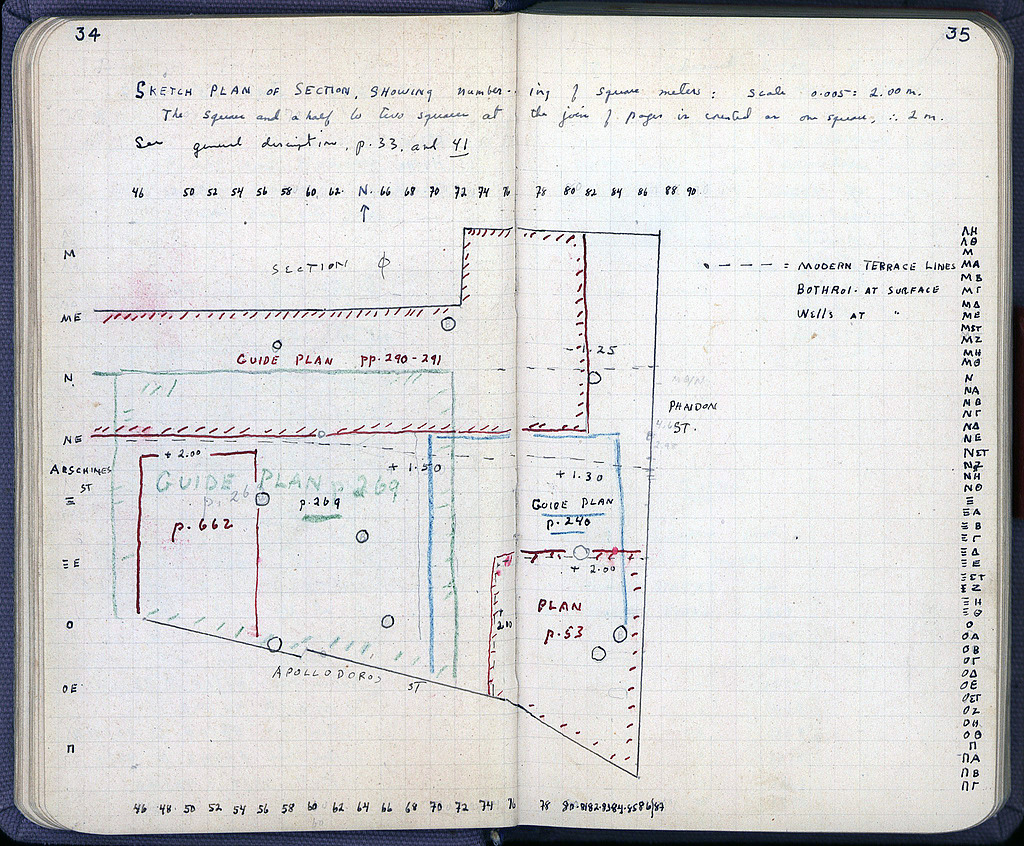 34
35
SKETCH PLAN OF SECTION, SHOWING number-ing of square meters: scale 0.005 = 2.00 m.
The square and a half to two squares at the join of pages is counted as one square, ∴ 2 m.
See general description, p. 33, and 41
46 50 52 54 56 58 60 62 N 66 68 70 72 74 76 78 80 82 84 86 88 90
↑
M
ME
N
NE
Ξ
ΞE
O
OE
Π
SECTION Φ
- - - - = MODERN TERRACE LINES
BOTHROI AT SURFACE
Wells AT "
GUIDE PLAN pp. 290-291
- 1.25
PHAIDON
ST.
ARSCHINES
ST
+ 2.00
+ 1.50
+ 1.30
GUIDE PLAN p 269
p. 26
p. 269
p. 662
GUIDE PLAN
p. 240
+ 2.00
+
2.10
PLAN
p. 53
APOLLODOROS
ST
46 48 50 52 54 56 58 60 62 64 66 68 70 72 74 76 78 80 81 82 83 84 85 86 87
60
ΛH
ΛΘ
M
MA
MB
MΓ
MΔ
ME
MΣT
MZ
MH
MΘ
N
NA
NB
NΓ
NΔ
NE
NΣT
NZ
NH
NΘ
Ξ
ΞA
ΞB
ΞΓ
ΞΔ
ΞE
ΞΣT
ΞZ
ΞH
ΞΘ
O
OA
OB
OΓ
OΔ
OE
OΣT
OZ
OH
OΘ
Π
ΠA
ΠB
ΠΓ